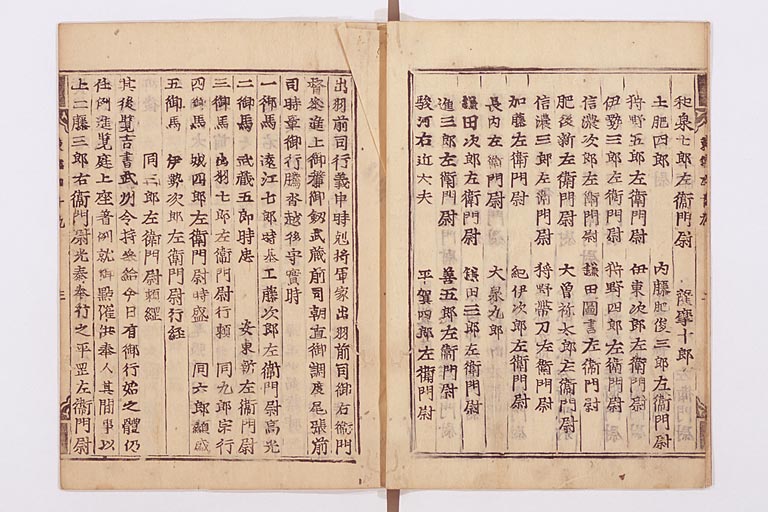 和泉七郎左衛門尉 薩摩十郎左衛門尉
土肥四郎 内藤肥後三郎左衛門尉
狩野五郎左衛門尉 伊東次郎左衛門尉
伊勢三郎左衛門尉 狩野四郎左衛門尉
信濃次郎左衛門尉 鎌田圖書左衛門尉
肥後新左衛門尉 大曽祢太郎左衛門尉
信濃三郎左衛門尉 狩野帯刀左衛門尉
加藤左衛門尉 紀伊次郎左衛門尉
長内左衛門尉 大泉九郎
鎌田次郎左衛門尉 鎌田三郎左衛門尉
進三郎左衛門尉 善五郎左衛門尉
駿河右近大夫 平賀四郎左衛門尉
出羽前司行義申時尅將軍家出羽前司御右衛門
督參進上御釼武蔵前司朝直御調度尾張前
司時章御行騰沓越後守實時
一御馬 遠江七郎時基工藤次郎左衛門尉高光
二御馬 武蔵五郎時忠 安東新左衛門尉
三御馬 出羽七郎左衛門尉行頼 同九郎宗行
四御馬 城四郎左衛門尉時盛 同六郎顕盛
五御馬 伊勢次郎左衛門尉行経
同三郎左衛門尉頼經
其後覧吉書武州令持參給今日有御行始之體仍
住例進覧庭上座著例就御點催供奉人其間事以
上二藤三郎右衛門尉光泰奉行之平罡左衛門尉